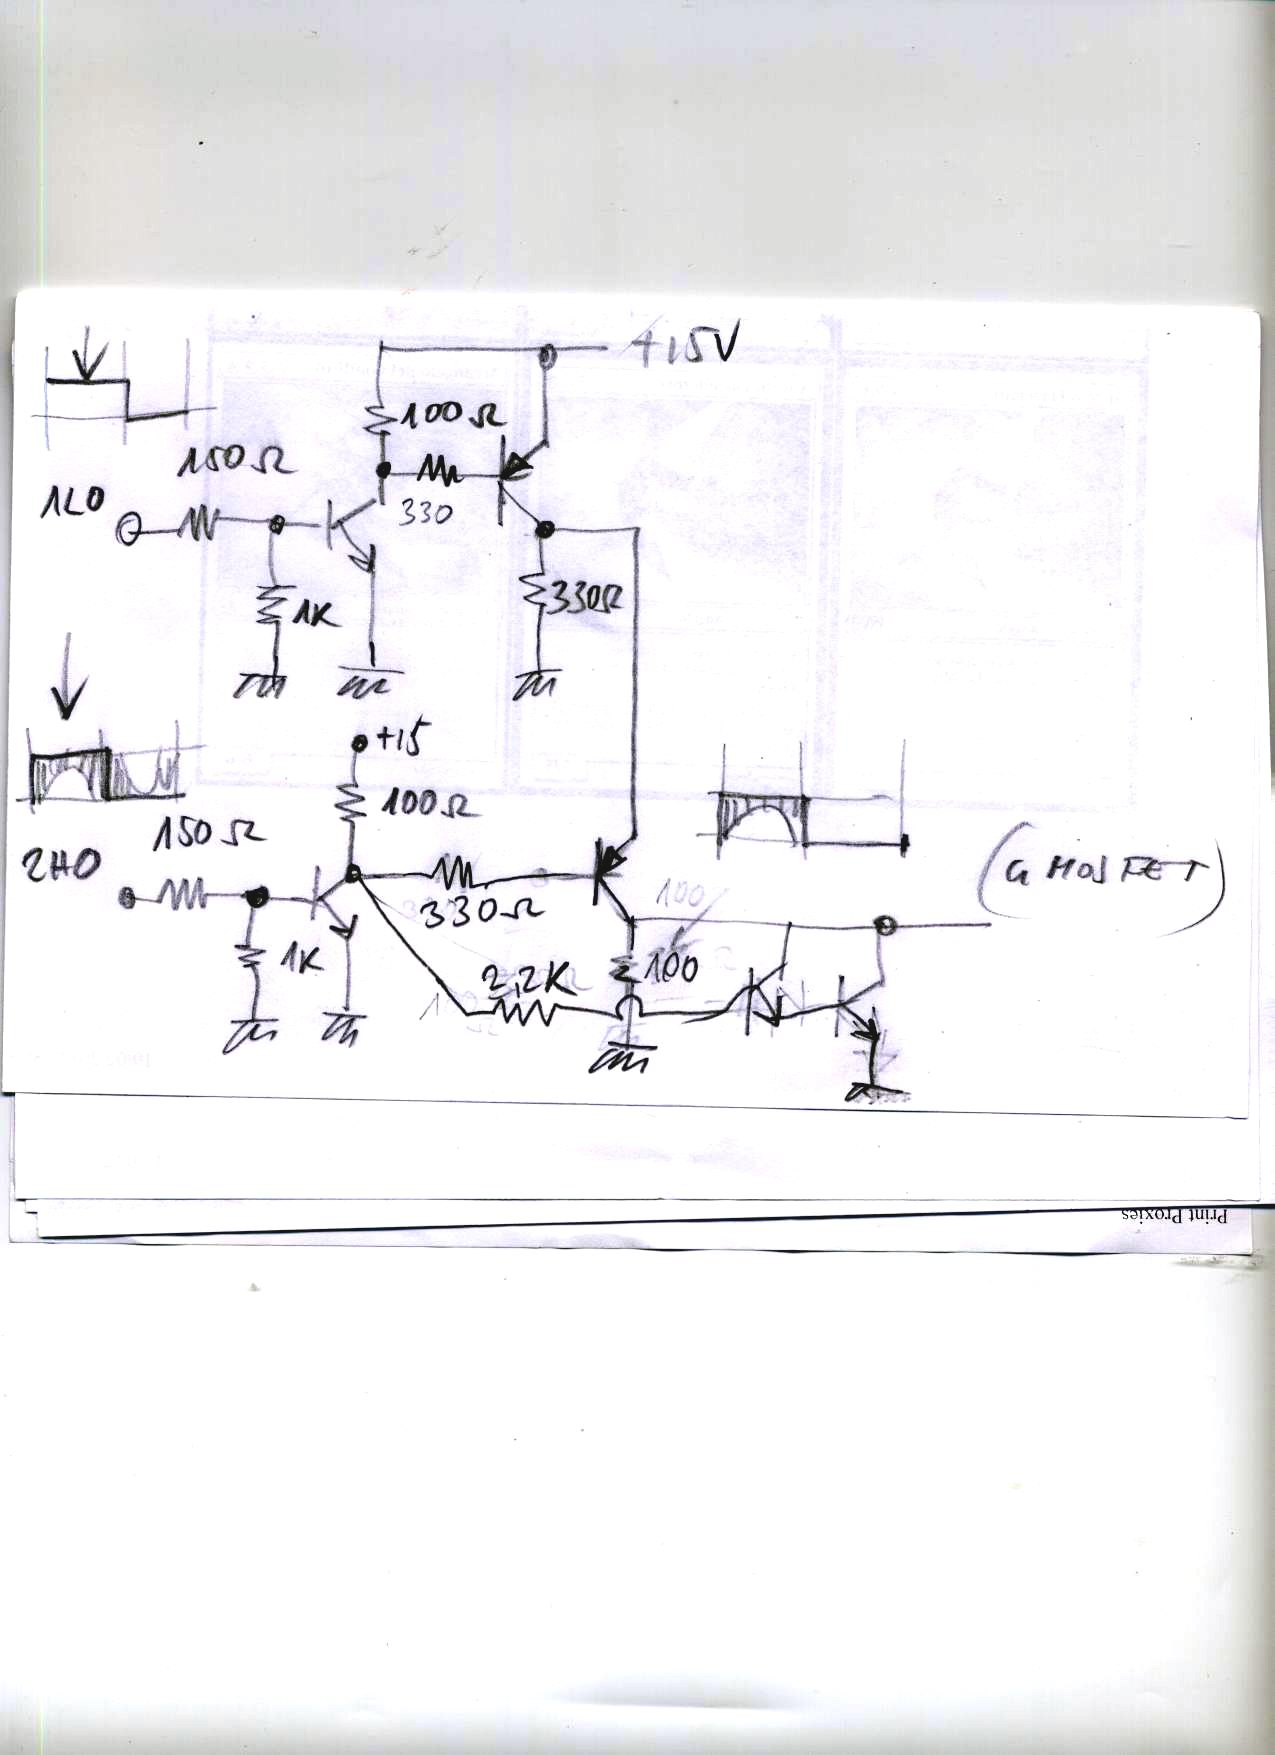 +15V
100Ω
150Ω
1L0
330
1K
330Ω
+15
100Ω
150Ω
2H0
330Ω
100
(G MOSFET)
1K
2,2K
100
Print Proxies